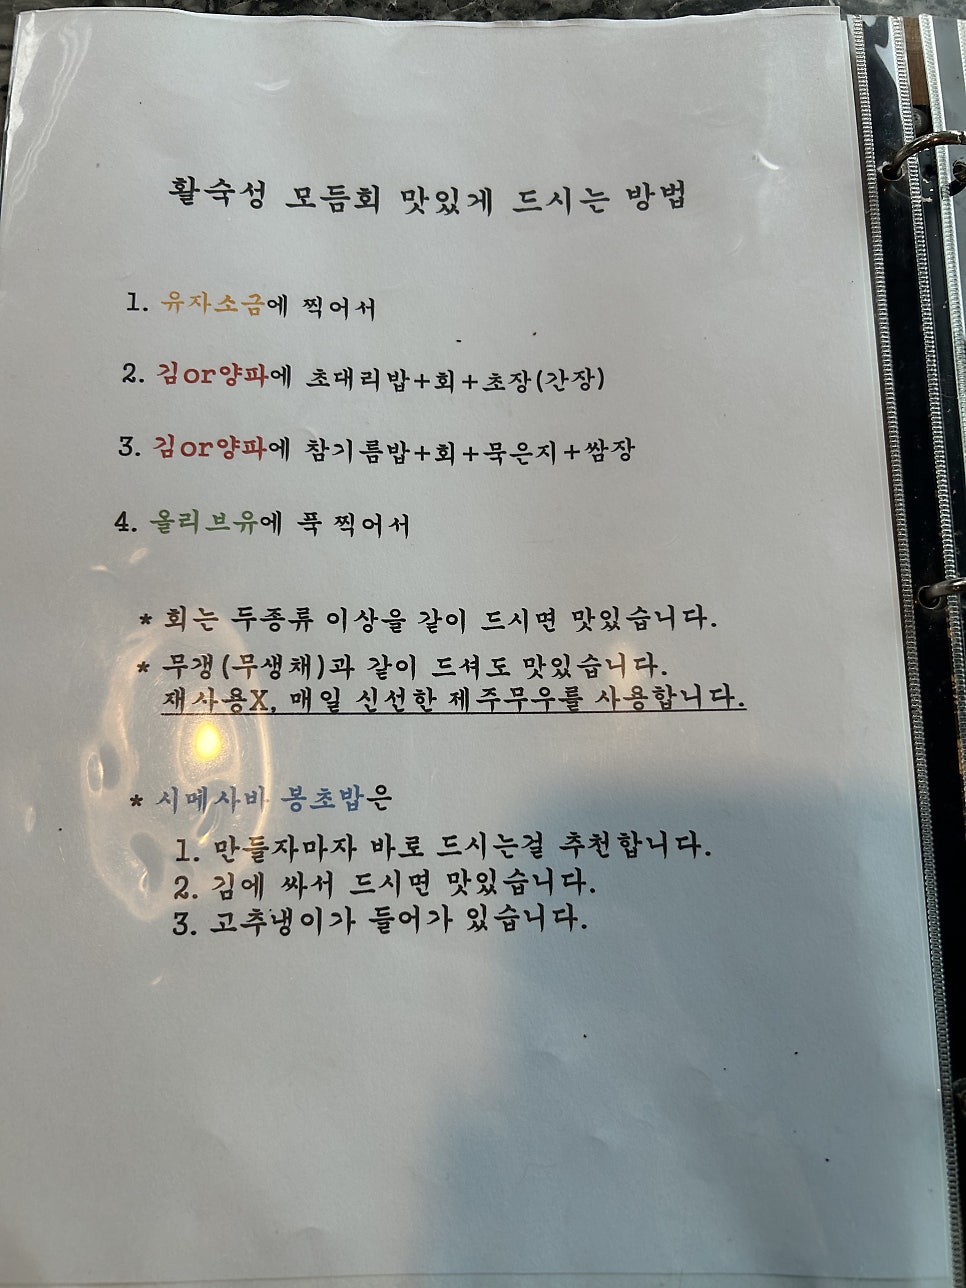 활숙성 모듬회 맛있게 드시는 방법
1. 유자소금에 찍어서
2. 김or양파에 초대리밥+회+초장(간장)
3. 김or양파에 참기름밥+회+묵은지+쌈장
4. 올리브유에 푹 찍어서
* 회는 두종류 이상을 같이 드시면 맛있습니다.
* 무갱(무생채)과 같이 드셔도 맛있습니다.
재사용X, 매일 신선한 제주무우를 사용합니다.
* 시메사바 봉초밥은
1. 만들자마자 바로 드시는걸 추천합니다.
2. 김에 싸서 드시면 맛있습니다.
3. 고추냉이가 들어가 있습니다.